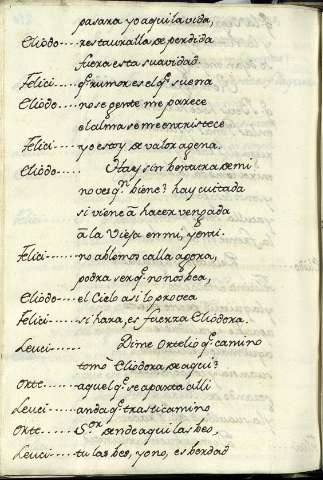 pasara yo aqui la vida,
Cliodo---- restauralla de perdida
fuera esta suavidad.
Felici---- q̃ rumor es el q̃ suena
Cliodo---- no se gente me parece
el alma se me entristece
Felici---- yo estoy de valor agena.
Cliodo---- Hay sin bentura de mi
no ves qⁿ biene? hay cuitada
si viene â hacer vengada
â la Vieja en mi, y en ti.
Felici---- no ablemos calla agora,
podra ser q̃ no nos bea,
Cliodo---- el Cielo asi lo provea
Felici---- si hara, es fuerza Cliodora.
Leuci------ Dime Ortelio q̃ camino
tomô Cliodora de aqui?
Orte------ aquel q̃ se aparta alli
Leuci----- anda q̃ tras ti camino
Orte----- S.ᵒʳ dende aqui las beo,
Leuci----- tu las bes, yo no, es berdad